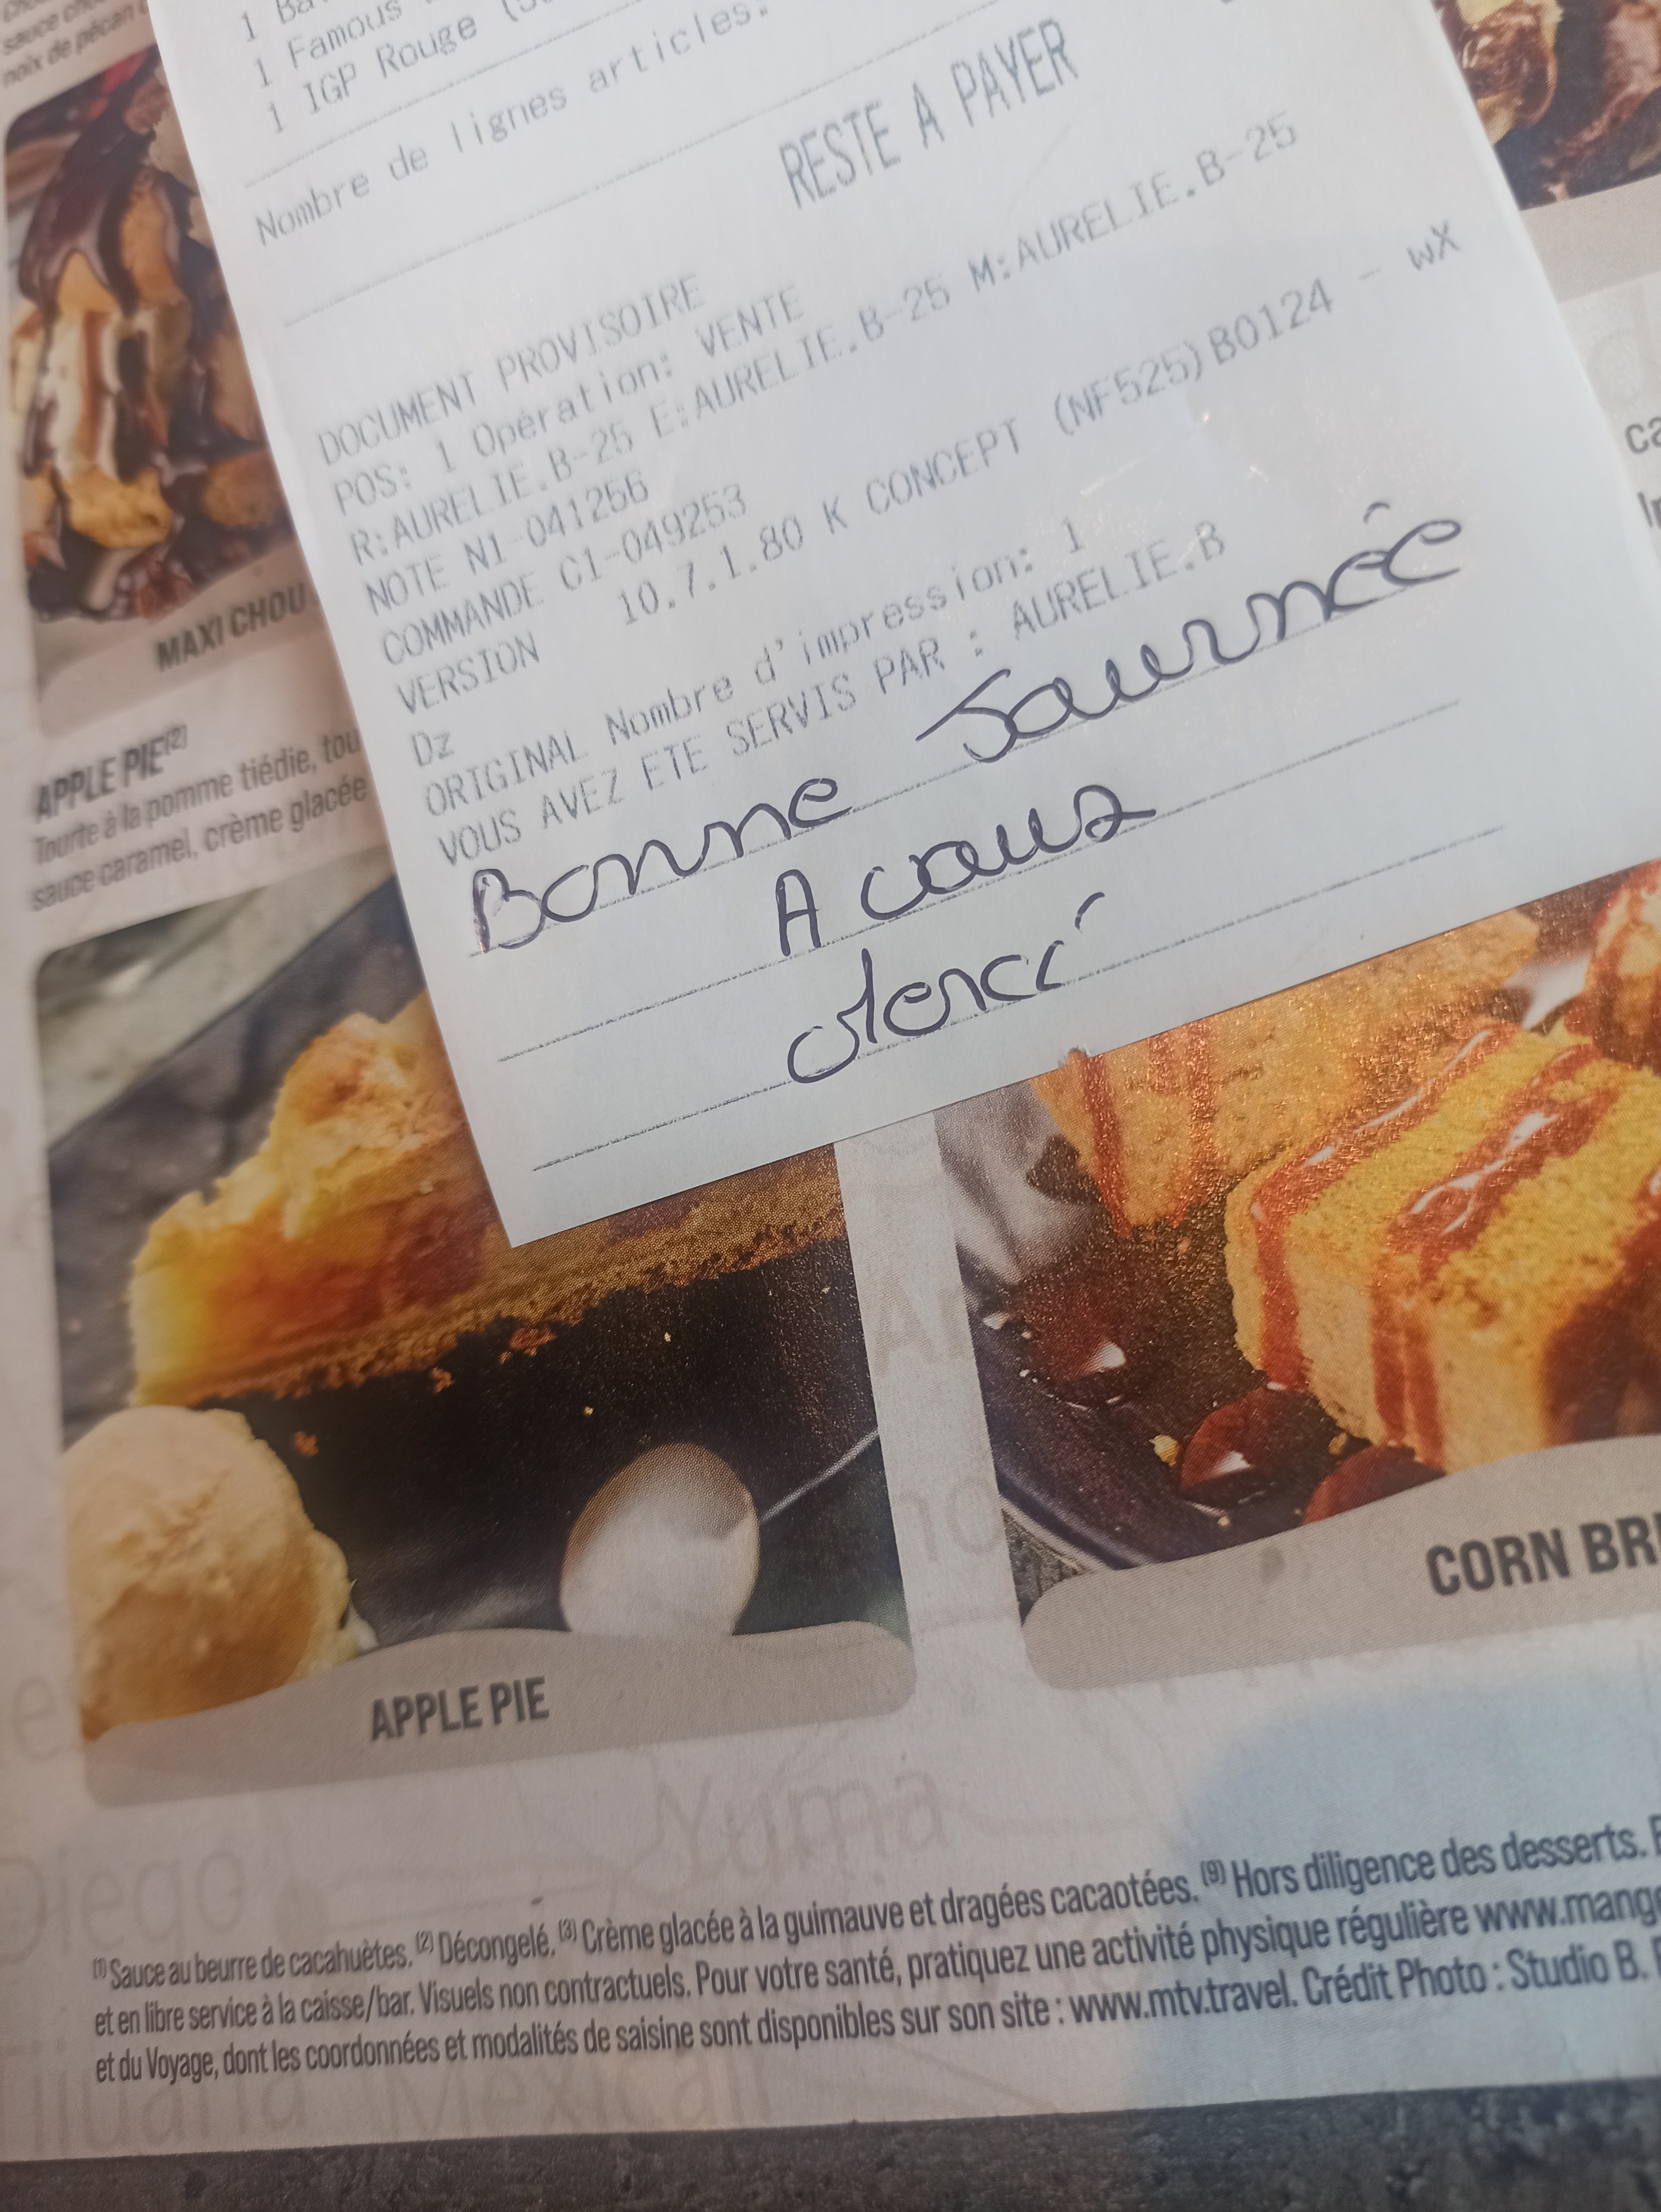 sauce choc
noix de pécan
MAXI CHOU
APPLE PIE(2)
Tourte à la pomme tiédie,
sauce caramel, crème glacée
1 Ba
1 Famous
1 IGP Rouge
Nombre de lignes articles:
RESTE A PAYER
DOCUMENT PROVISOIRE
POS: 1 Opération: VENTE
R:AURELIE.B-25 E:AURELIE.B-25 M:AURELIE.B-25
NOTE N1-041256
COMMANDE C1-049253
VERSION 10.7.1.80 K CONCEPT (NF525)B0124 - wX
Dz
ORIGINAL Nombre d'impression: 1
VOUS AVEZ ETE SERVIS PAR : AURELIE.B
Bonne Journée
A vous
Merci
APPLE PIE
CORN BR
Yuma
Diego
(1) Sauce au beurre de cacahuètes. (2) Décongelé. (3) Crème glacée à la guimauve et dragées cacaotées. (9) Hors diligence des desserts.
et en libre service à la caisse/bar. Visuels non contractuels. Pour votre santé, pratiquez une activité physique régulière www.mange
et du Voyage, dont les coordonnées et modalités de saisine sont disponibles sur son site : www.mtv.travel. Crédit Photo : Studio B.
Mexicali